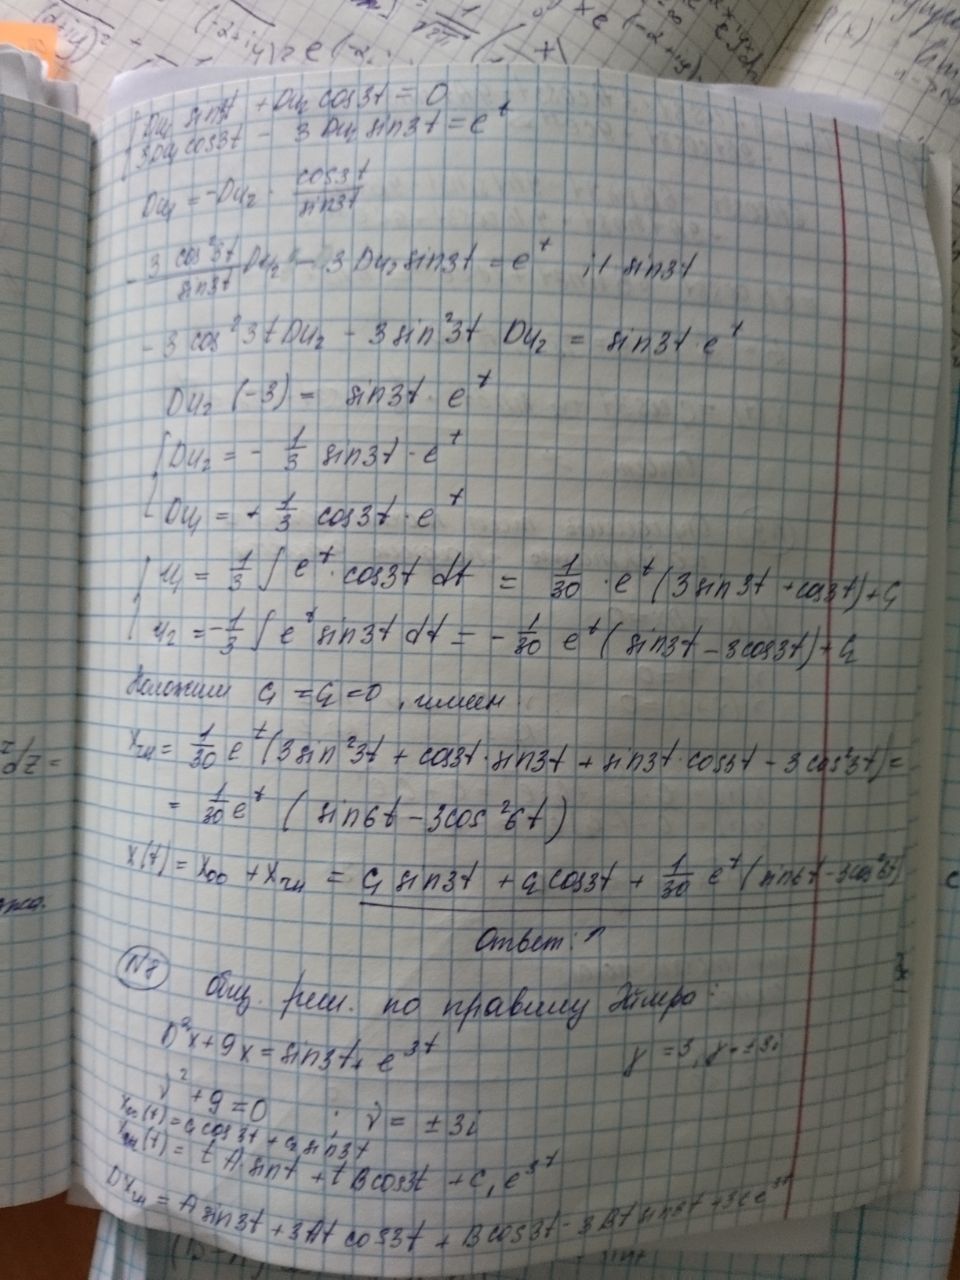 Du₁ sin3t + Du₂ cos3t = 0
3Du₁ cos3t - 3Du₂ sin3t = e^t
Du₁ = -Du₂ · cos3t / sin3t
-3 cos²3t / sin3t Du₂ - 3Du₂ sin3t = e^t ; | · sin3t
-3 cos²3t Du₂ - 3 sin²3t Du₂ = sin3t · e^t
Du₂ (-3) = sin3t · e^t
Du₂ = - 1/3 sin3t · e^t
Du₁ = + 1/3 cos3t · e^t
u₁ = 1/3 ∫ e^t · cos3t dt = 1/30 · e^t (3sin3t + cos3t) + C₁
u₂ = -1/3 ∫ e^t sin3t dt = - 1/30 e^t (sin3t - 3cos3t) + C₂
Положим C₁ = C₂ = 0, имеем
xчн = 1/30 e^t (3sin²3t + cos3t · sin3t + sin3t · cos3t - 3cos²3t) =
= 1/30 e^t (sin6t - 3cos²6t)
x(t) = xоо + xчн = C₁ sin3t + C₂ cos3t + 1/30 e^t (sin6t - 3cos²6t)
Ответ: ↑
N8
Общ. реш. по правилу Эйлера:
D²x + 9x = sin3t + e^3t
γ = 3, γ = ±3i
ν² + 9 = 0 ; ν = ±3i
xоо(t) = C₁ cos3t + C₂ sin3t
xчн(t) = t A sint + t B cos3t + C₁ e^3t
Dxчн = A sin3t + 3At cos3t + B cos3t - 3Bt sin3t + 3C e^3t